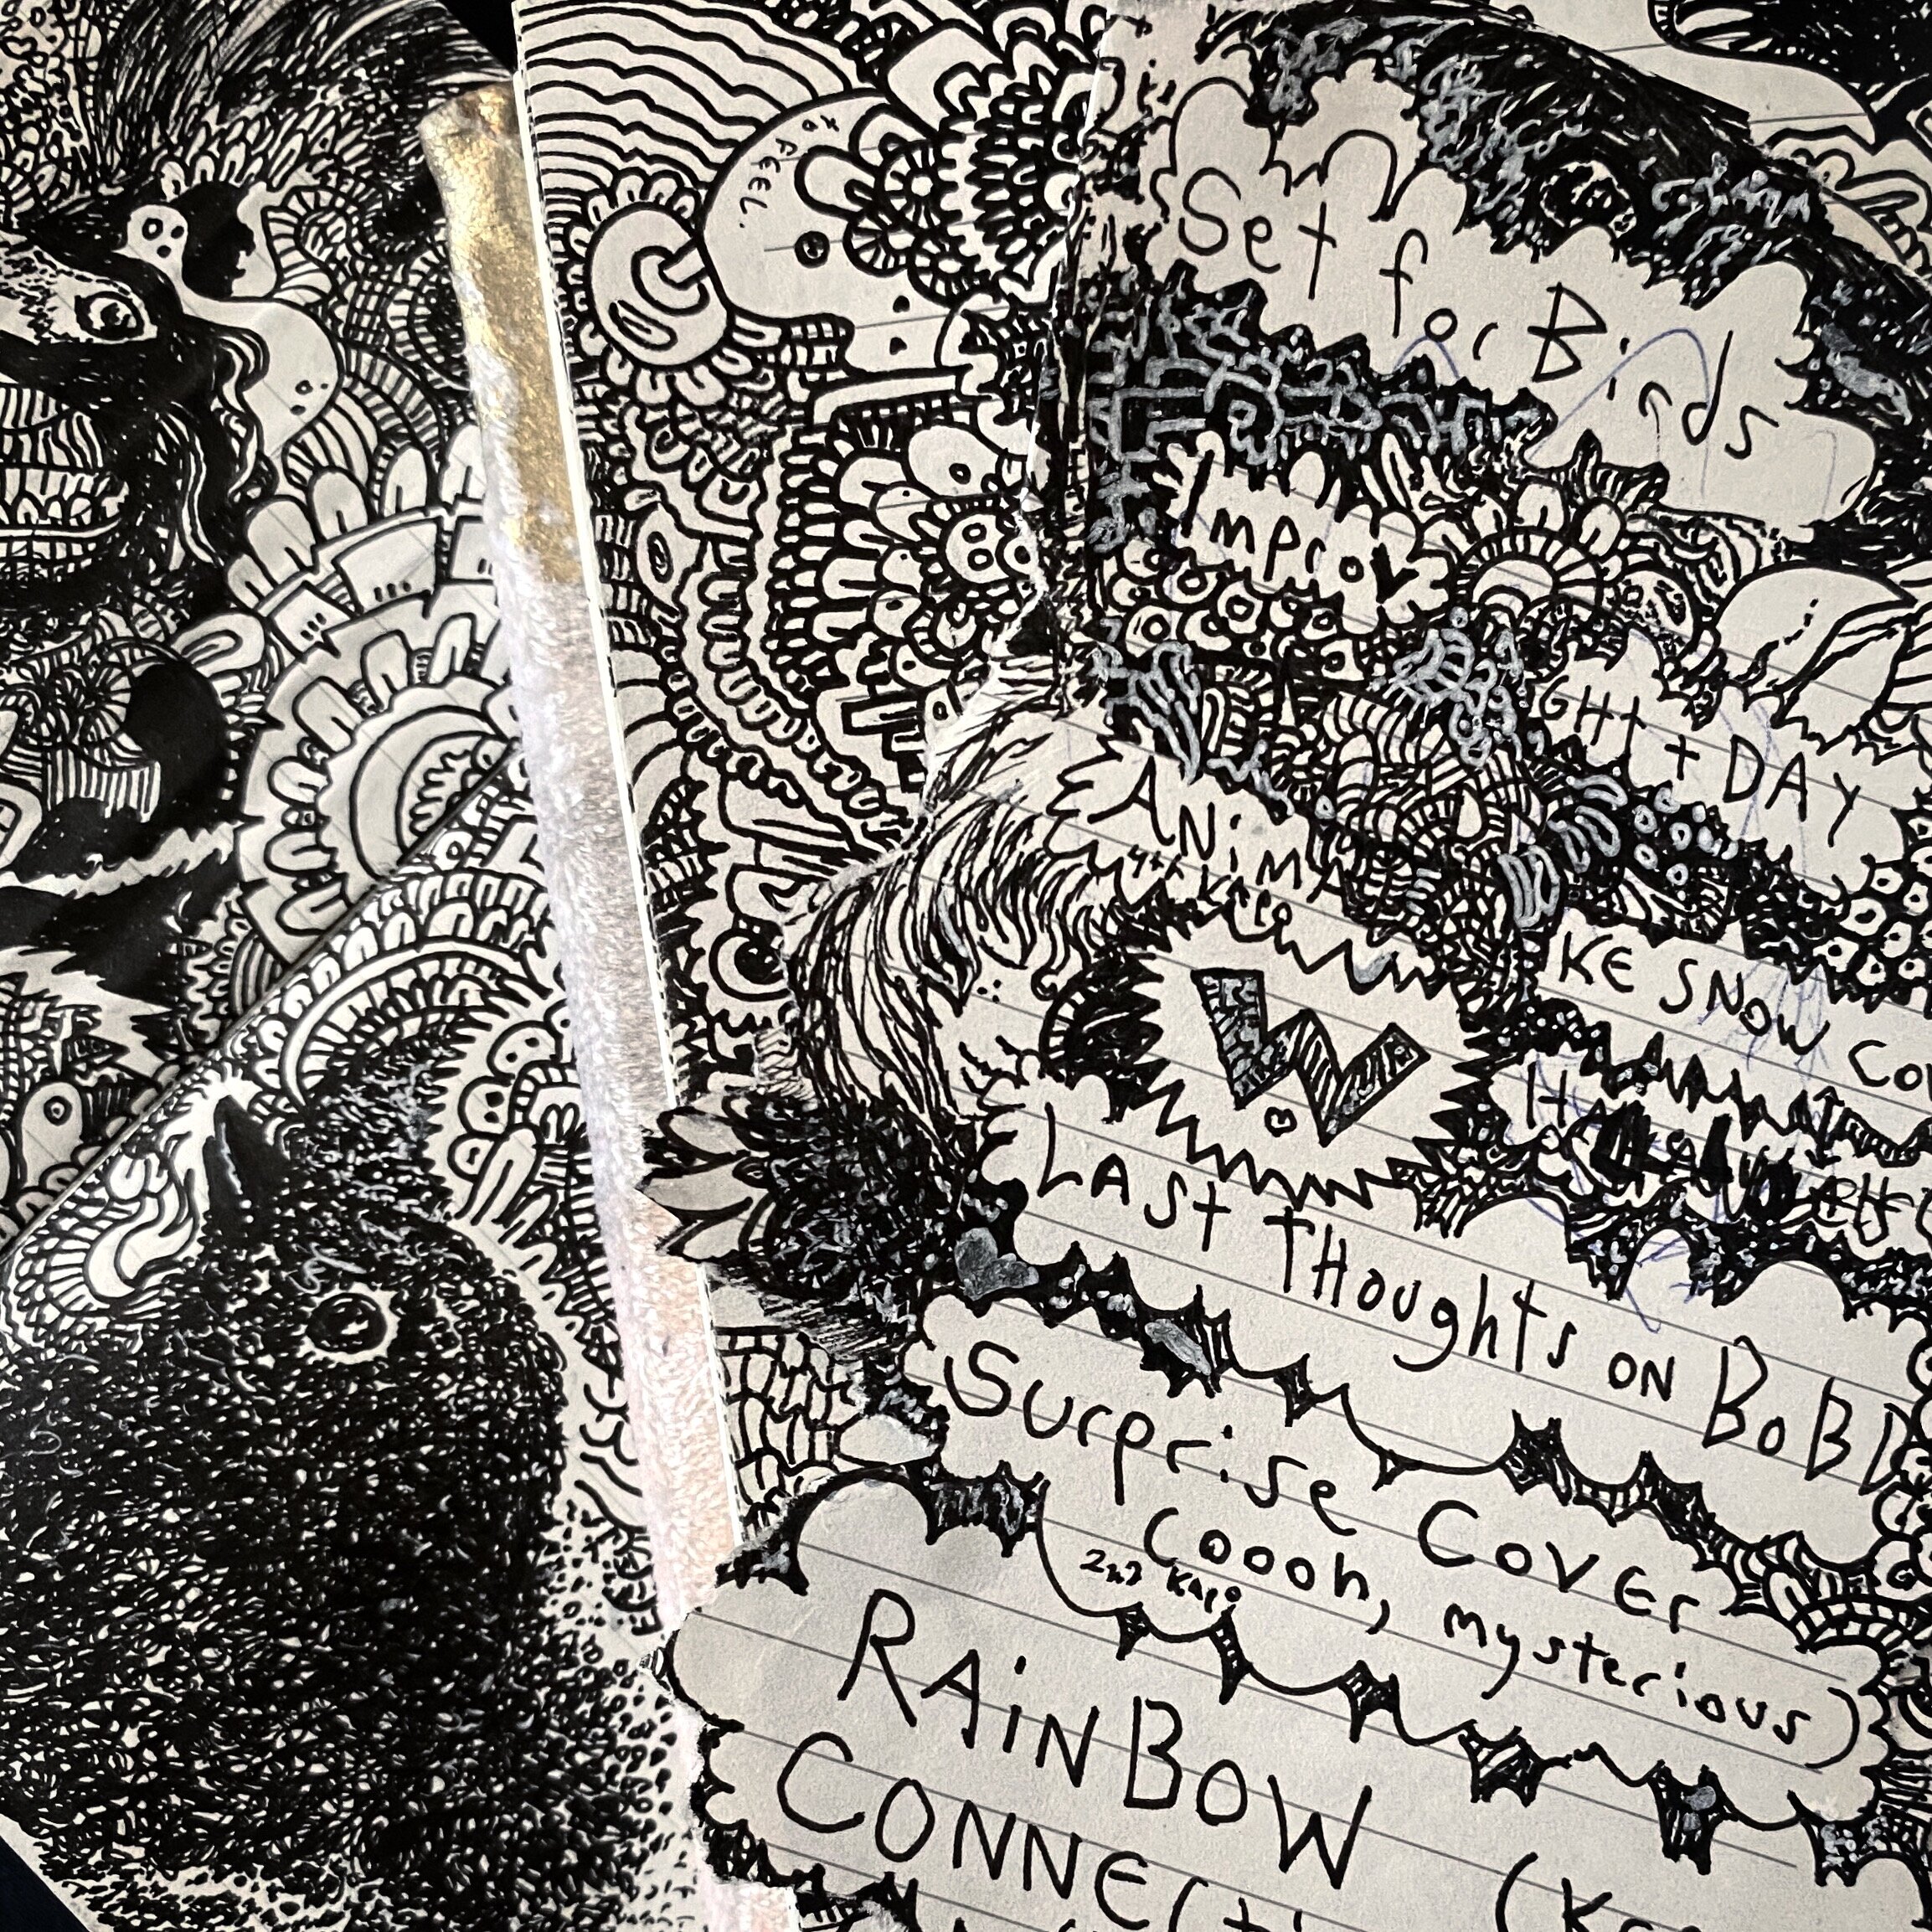 xo FEEL.
Set for Birds
Improv
GHT + DAY
ANIMA
4th Kapo
KE SNOW CO
W
LAST THoughts ON BoBD
Surprise Cover
(oooh, mysterious)
2nd Kapo
RAiNBOW
CONNECti
(Ka